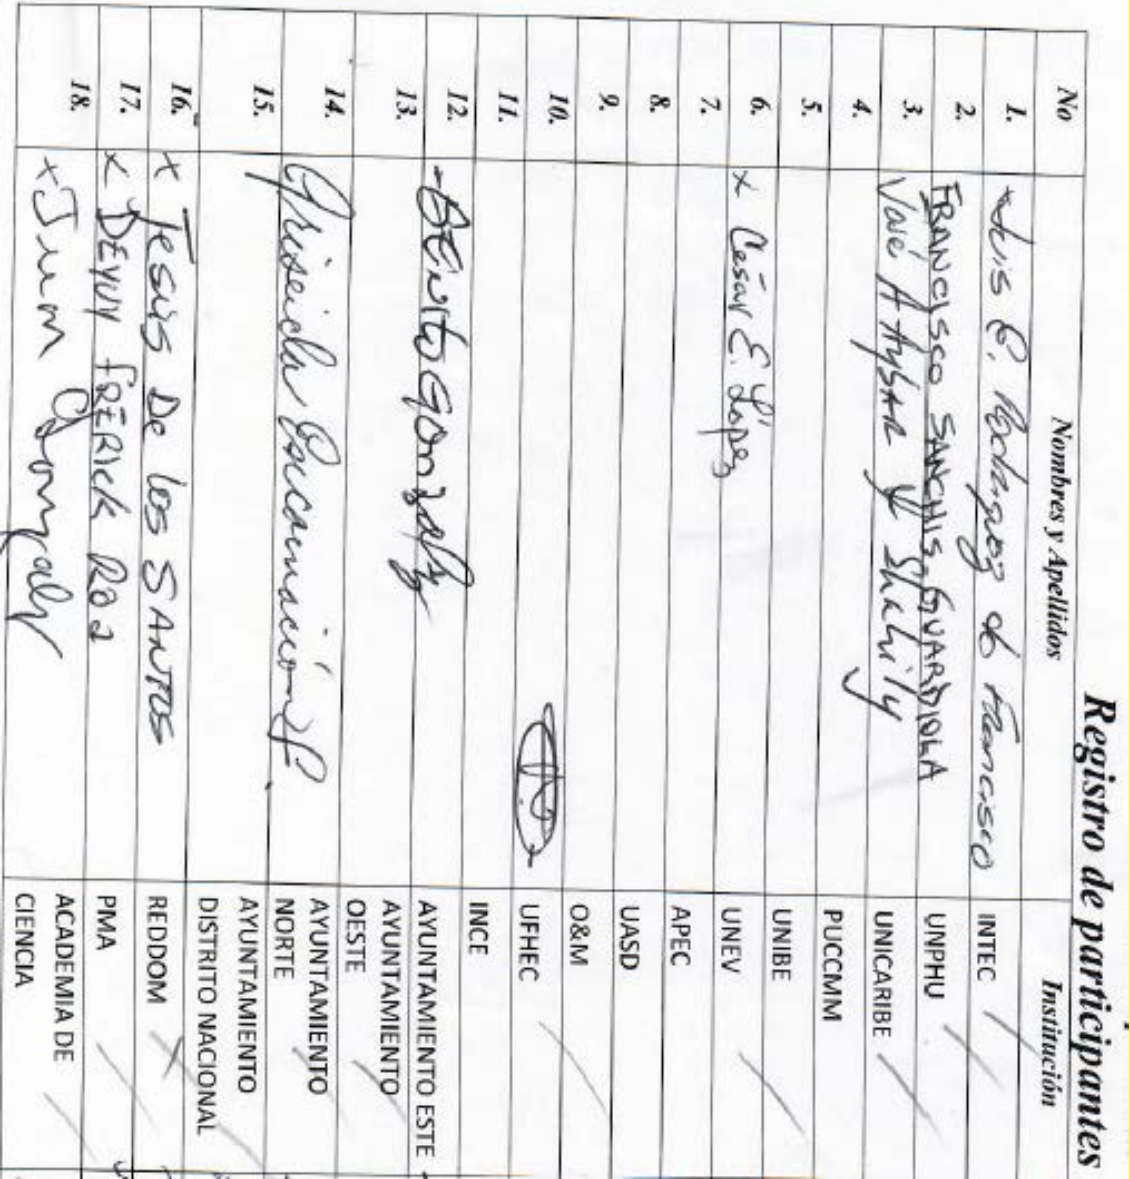 Registro de participantes
No Nombres y Apellidos Institución
1. Luis E. Rodriguez de Francisco INTEC
2. FRANCISCO SANCHIS-GUARDIOLA UNPHU
3. José A Aybar y Shahily UNICARIBE
4. PUCCMM
5. UNIBE
6. x César E. López UNEV
7. APEC
8. UASD
9. O&M
10. UFHEC
11. INCE
12. -BENITO GONZALEZ AYUNTAMIENTO ESTE
13. AYUNTAMIENTO
OESTE
14. Griseida Encarnación AYUNTAMIENTO
NORTE
15. AYUNTAMIENTO
DISTRITO NACIONAL
16. x Jesus De los SANTOS REDDOM
17. x DEYVY fRERICK Roa PMA
18. x Juan Gonzalez ACADEMIA DE
CIENCIA